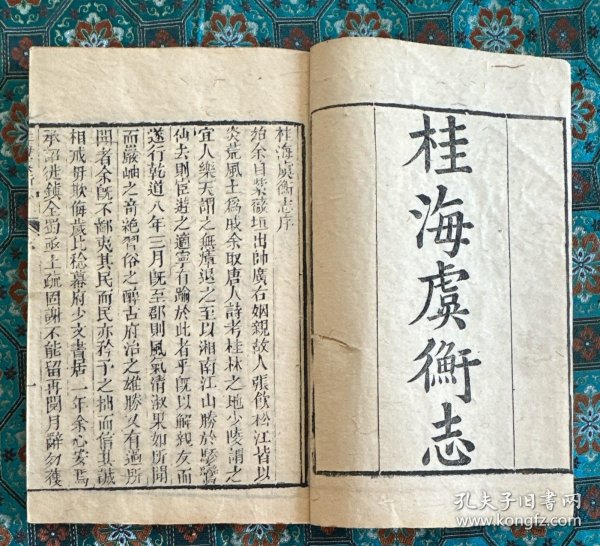 桂海虞衡志
桂海虞衡志序
始余自紫薇垣出帥廣右姻親故人張飲松江皆以
炎荒風土爲戚余取唐人詩考桂林之地少陵謂之
宜人樂天謂之無瘴退之至以湘南江山勝於驂鸞
仙去則臣遊之適寧有踰於此者乎旣以解親友而
遂行乾道八年三月旣至郡則風氣淸淑果如所聞
而巖岫之奇絶習俗之醇古府治之雄勝又有過所
聞者余旣不鄙夷其民而民亦矜予之拙而信其誠
相戒毋欺侮歲比稔幕府少文書居一年余心安焉
承詔徙鎭全蜀亟上疏固謝不能留再閱月辭勿獲
孔夫子旧书网
www.kongfz.com